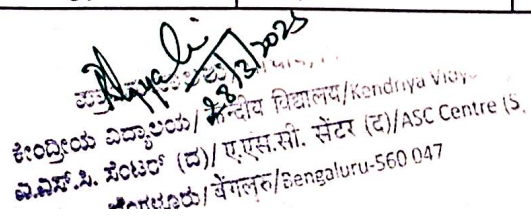 28/3/2025
ಕೇಂದ್ರೀಯ ವಿದ್ಯಾಲಯ/ केन्द्रीय विद्यालय/Kendriya
ಎ.ಎಸ್.ಸಿ. ಸೆಂಟರ್ (ದ)/ ए.एस.सी. सेंटर (द)/ASC Centre (S
ಬೆಂಗಳೂರು/ बेंगलुरु/Bengaluru-560 047